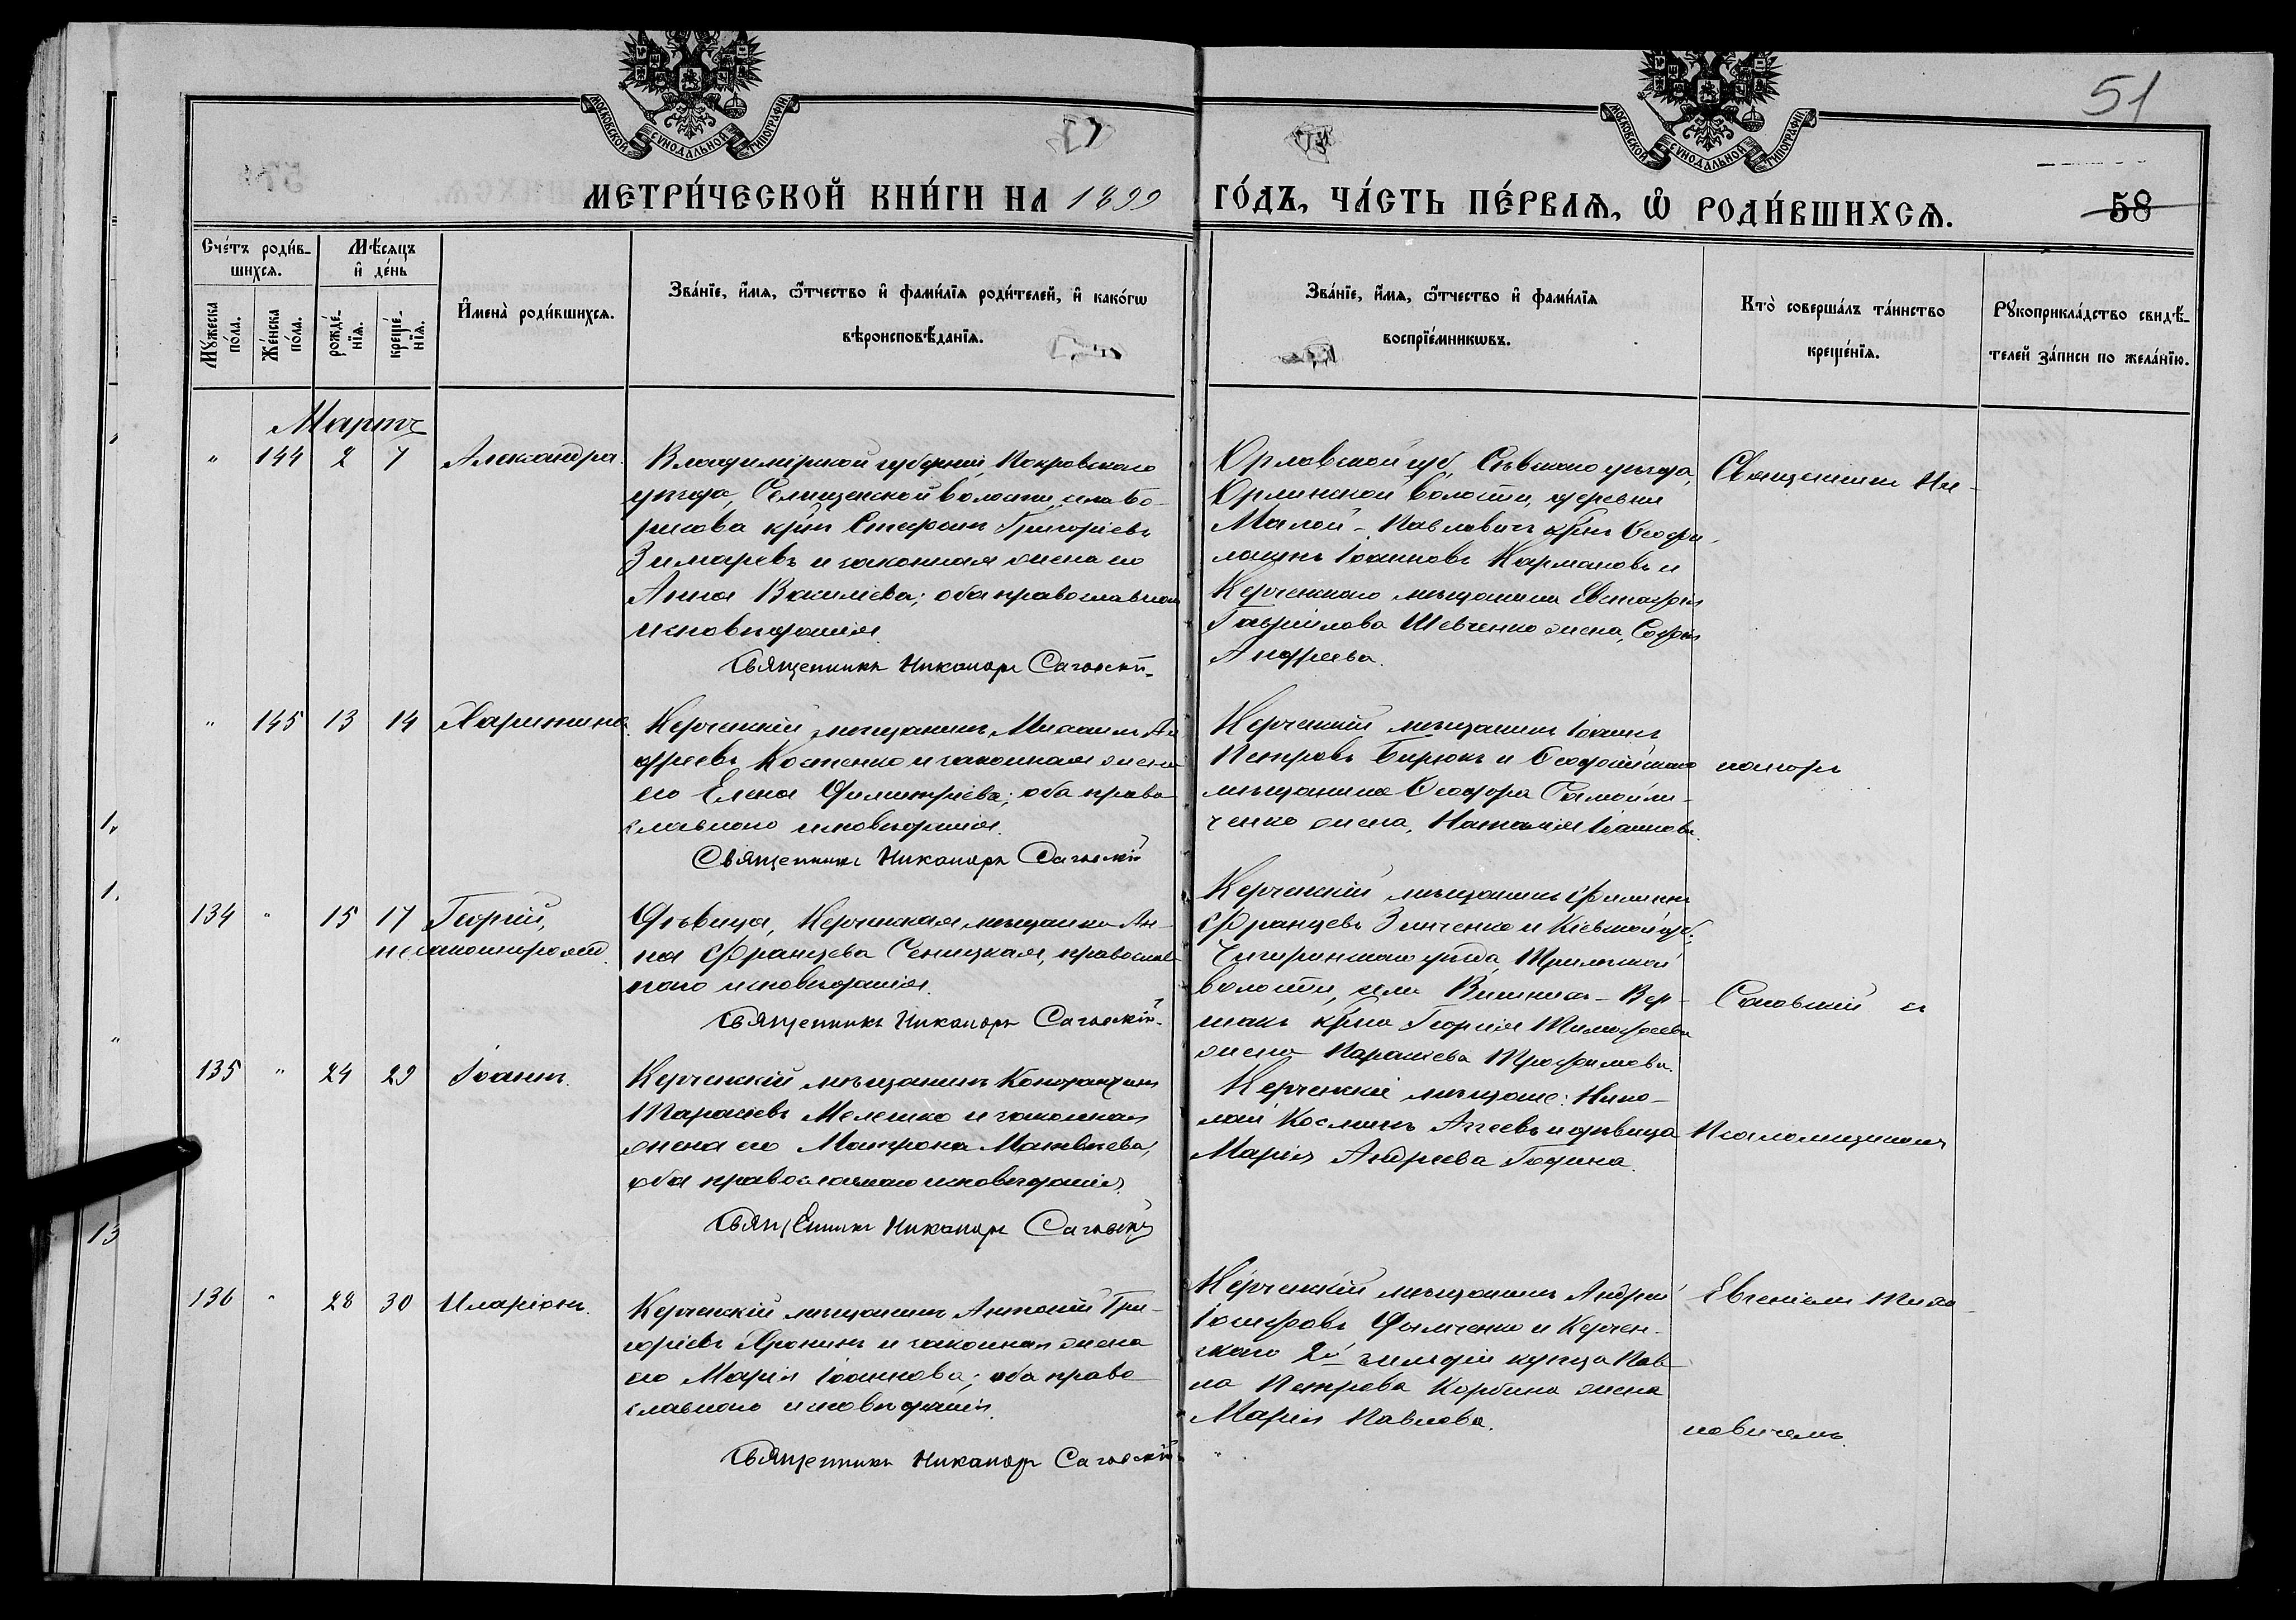 51
МОСКОВСКОЙ СѴНОДАЛЬНОЙ ТИПОГРАФІИ
МОСКОВСКОЙ СѴНОДАЛЬНОЙ ТИПОГРАФІИ
МЕТРИ́ЧЕСКОЙ КНИ́ГИ НА 1899 ГО́ДЪ, ЧА́СТЬ ПЕ́РВАѦ, Ѡ҆ РОДИ́ВШИХСѦ. 58
Сче́тъ роди́в-
шихсѧ.
Мꙋ́жеска по́ла.
Же́нска по́ла.
Мѣ́сѧцъ
и҆ де́нь
рожде́-
нїѧ.
креще́-
нїѧ.
И҆мена̀ роди́вшихсѧ.
Зва́нїе, и҆́мѧ, ѻ҆́тчество и҆ фами́лїѧ роди́телей, и҆ како́гѡ
вѣроисповѣ́данїѧ.
Зва́нїе, и҆́мѧ, ѻ҆́тчество и҆ фами́лїѧ
воспрїе́мникѡвъ.
Кто̀ соверша́лъ та́инство
креще́нїѧ.
Рꙋкоприкла́дство свидѣ́-
телей за́писи по жела́нїю.
Мартъ
" 144 2 7 Александра.
Владимірской губерніи, Покровскаго
уѣзда, Селищенской волости, села Бо-
рисова крн Григоріевъ
Зимаревъ и законная жена его
Анна Василіева; оба православнаго
исповѣданія.
Священникъ Никаноръ Саговскій.
Орловской губ, Сѣвскаго уѣзда,
волости, деревни
Малой - Павловичъ крн Ѳеофи-
лактъ Іоанновъ Кармановъ и
Керченскаго мѣщанина
Гавріилова Шевченко жена, Софія
Андреева.
Священникъ Ни-
" 145 13 14 Харитина.
Керченскій мѣщанинъ Михаилъ Ан-
дреевъ Костенко и законная жена
его Елена Димитріева; оба право-
славнаго исповѣданія.
Священникъ Никаноръ Саговскій
Керченскій мѣщанинъ Іоаннъ
Петровъ Бирюкъ и Ѳеодосійскаго
мѣщанина Ѳеодора Самойли-
ченко жена, Наталія Іоаннова.
каноръ
134 " 15 17 Георгій,
незаконнорожд.
Дѣвица, Керченская мѣщанка Ан-
на Францева Сеницкая, православ-
наго исповѣданія.
Священникъ Никаноръ Саговскій.
Керченскій мѣщанинъ Филиппъ
Францевъ Зинченко и Кіевской губ.
Чигиринскаго уѣзда,
волости, села Вер-
крна Георгія Тимофеева
жена Параскева Трофимова.
Саговскій съ
135 " 24 29 Іоаннъ.
Керченскій мѣщанинъ Константинъ
Тарасіевъ Мелешко и законная
жена его Матрона Матвѣева,
оба православнаго исповѣданія.
Священникъ Никаноръ Саговскій
Керченскіе мѣщане: Нико-
лай Космичъ Агеевъ и дѣвица
Марія Андреева
Псаломщикомъ
136 " 28 30 Иларіонъ.
Керченскій мѣщанинъ Антоній Гри-
горіевъ и законная жена
его Марія Іоаннова; оба право-
славнаго исповѣданія.
Священникъ Никаноръ Саговскій
Керченскій мѣщанинъ Андрей
Іосифовъ и Керчен-
скаго 2й гильдіи купца Пав-
ла Петрова Корбина жена
Марія Павлова.
Евгеніемъ
новичемъ.